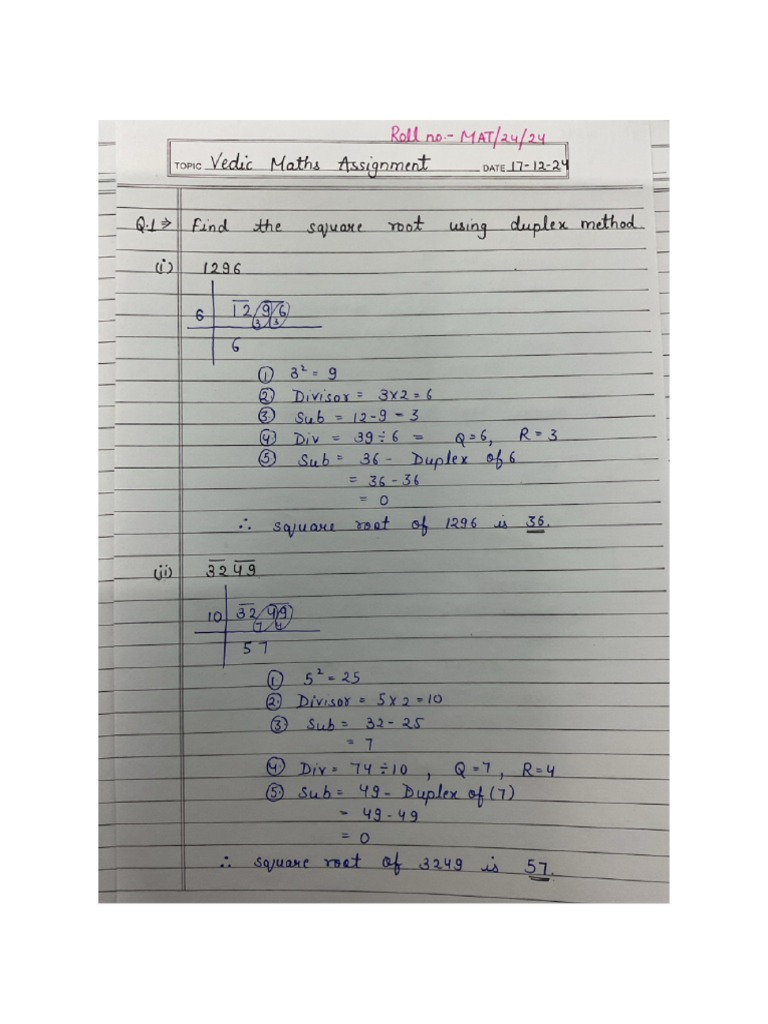 Roll no.- MAT/24/24
TOPIC Vedic Maths Assignment DATE 17-12-24
Q.1⇒ Find the square root using duplex method
(i) 1296
6 | 12 9 6
3 3
6
① 3² = 9
② Divisor = 3×2 = 6
③ Sub = 12-9 = 3
④ Div = 39÷6 = Q=6, R=3
⑤ Sub = 36 - Duplex of 6
= 36-36
= 0
∴ square root of 1296 is 36.
(ii) 32 49
10 | 32 49
7 4
57
① 5² = 25
② Divisor = 5×2 = 10
③ Sub = 32-25
= 7
④ Div = 74÷10, Q=7, R=4
⑤ Sub = 49 - Duplex of (7)
= 49-49
= 0
∴ square root of 3249 is 57.